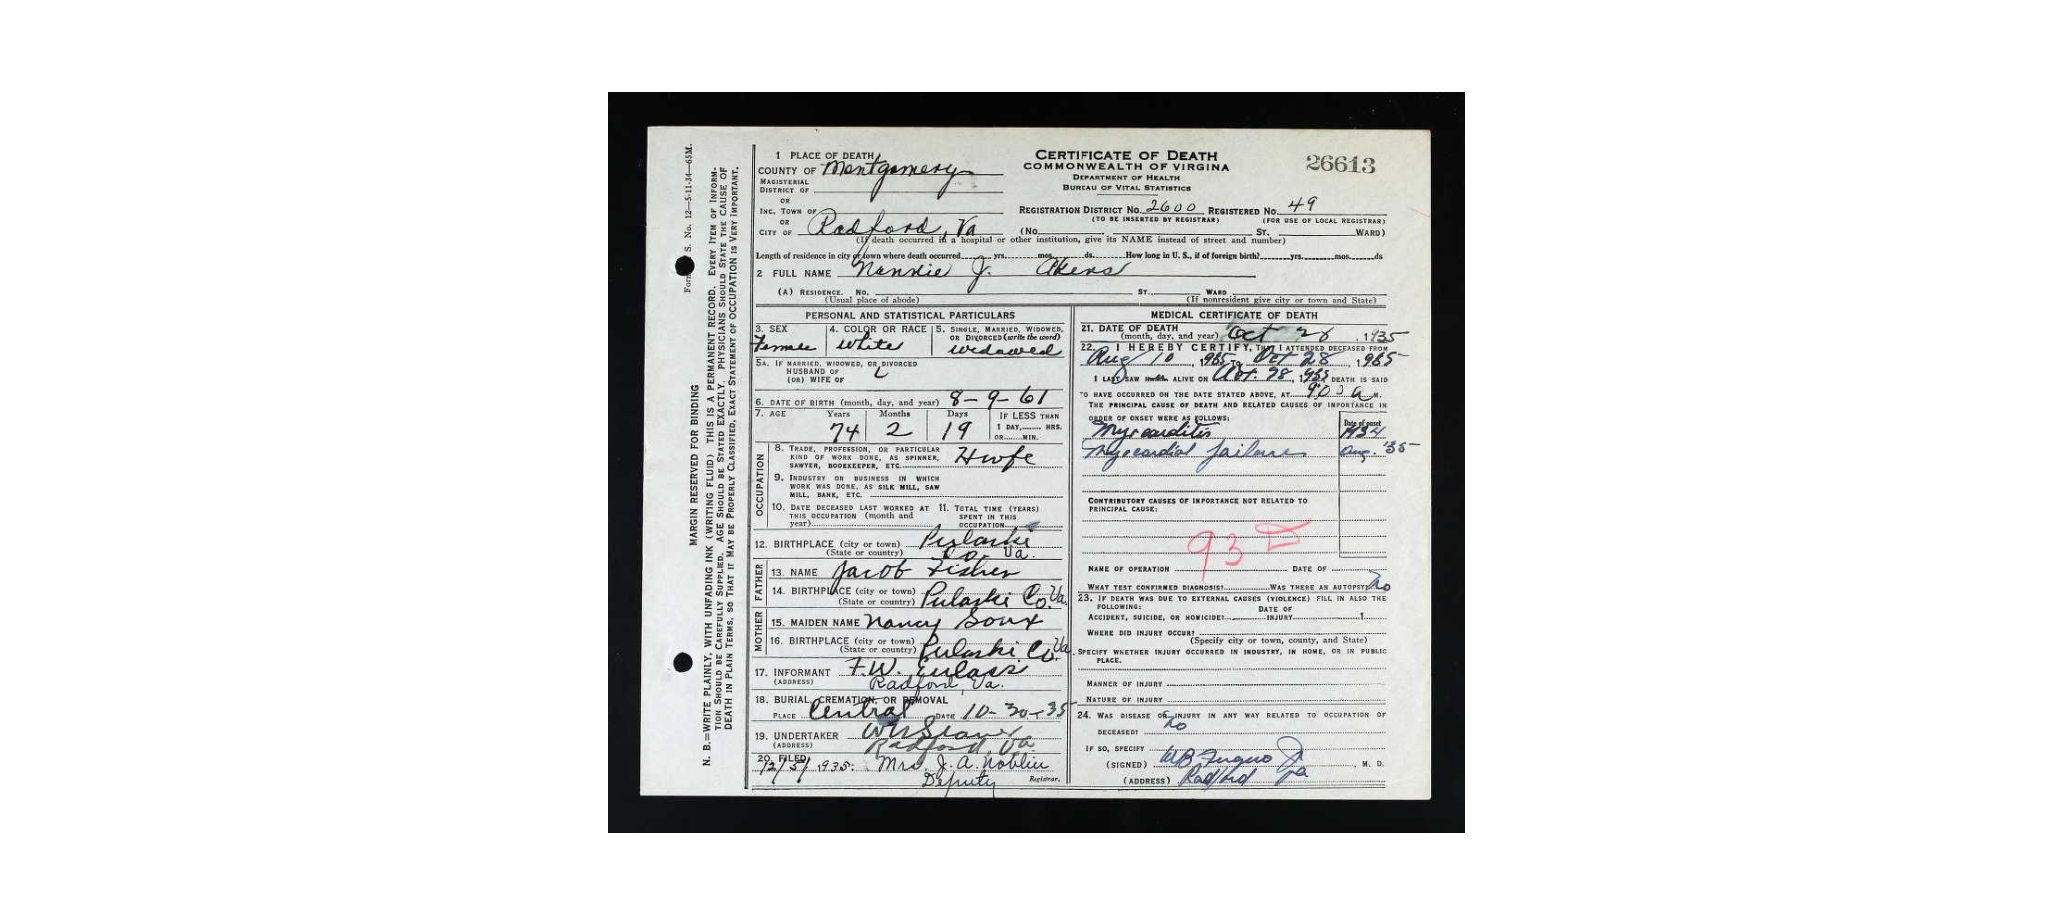 Form V. S. No. 12—5-11-34—65M.
MARGIN RESERVED FOR BINDING
N. B.=WRITE PLAINLY, WITH UNFADING INK (WRITING FLUID) THIS IS A PERMANENT RECORD. EVERY ITEM OF INFORM-
TION SHOULD BE CAREFULLY SUPPLIED. AGE SHOULD BE STATED EXACTLY. PHYSICIANS SHOULD STATE THE CAUSE OF
DEATH IN PLAIN TERMS, SO THAT IT MAY BE PROPERLY CLASSIFIED. EXACT STATEMENT OF OCCUPATION IS VERY IMPORTANT.
1 PLACE OF DEATH
COUNTY OF Montgomery
MAGISTERIAL
DISTRICT OF
OR
INC. TOWN OF
OR
CITY OF Radford, Va
CERTIFICATE OF DEATH
COMMONWEALTH OF VIRGINIA
DEPARTMENT OF HEALTH
BUREAU OF VITAL STATISTICS
26613
REGISTRATION DISTRICT NO. 2600 REGISTERED NO. 49
(TO BE INSERTED BY REGISTRAR) (FOR USE OF LOCAL REGISTRAR)
(No. ST. WARD)
(If death occurred in a hospital or other institution, give its NAME instead of street and number)
Length of residence in city or town where death occurred yrs. mos. ds. How long in U. S., if of foreign birth? yrs. mos. ds
2 FULL NAME Nannie J. Akers
(A) RESIDENCE. NO. ST. WARD
(Usual place of abode) (If nonresident give city or town and State)
PERSONAL AND STATISTICAL PARTICULARS
3. SEX 4. COLOR OR RACE 5. SINGLE, MARRIED, WIDOWED,
OR DIVORCED (write the word)
Female White widowed
5A. IF MARRIED, WIDOWED, OR DIVORCED
HUSBAND OF
(OR) WIFE OF
6. DATE OF BIRTH (month, day, and year) 8-9-61
7. AGE Years Months Days IF LESS THAN
1 DAY, HRS.
OR MIN.
74 2 19
OCCUPATION
8. TRADE, PROFESSION, OR PARTICULAR
KIND OF WORK DONE, AS SPINNER,
SAWYER, BOOKKEEPER, ETC. Hwfe
9. INDUSTRY OR BUSINESS IN WHICH
WORK WAS DONE, AS SILK MILL, SAW
MILL, BANK, ETC.
10. DATE DECEASED LAST WORKED AT 11. TOTAL TIME (YEARS)
THIS OCCUPATION (month and SPENT IN THIS
year) OCCUPATION
12. BIRTHPLACE (city or town) Pulaski
(State or country) Co. Va.
FATHER
13. NAME Jacob Fisher
14. BIRTHPLACE (city or town)
(State or country) Pulaski Co. Va.
MOTHER
15. MAIDEN NAME Nancy
16. BIRTHPLACE (city or town)
(State or country) Pulaski Co. Va.
17. INFORMANT F.W.
(ADDRESS) Radford, Va.
18. BURIAL, CREMATION, OR REMOVAL
PLACE Central DATE 10-30-35
19. UNDERTAKER
(ADDRESS) Radford, Va.
20. FILED 12/5/1935. Mrs. J. A. Noblin
Deputy Registrar.
MEDICAL CERTIFICATE OF DEATH
21. DATE OF DEATH
(month, day, and year) Oct 28, 1935
22. I HEREBY CERTIFY, THAT I ATTENDED DECEASED FROM
Aug 10, 1935 TO Oct 28, 1935
I LAST SAW ALIVE ON Oct. 28, 1935 DEATH IS SAID
TO HAVE OCCURRED ON THE DATE STATED ABOVE, AT 9:00 a M.
THE PRINCIPAL CAUSE OF DEATH AND RELATED CAUSES OF IMPORTANCE IN
ORDER OF ONSET WERE AS FOLLOWS: Date of onset
Myocarditis 1934
Myocardial failure Aug. '35
CONTRIBUTORY CAUSES OF IMPORTANCE NOT RELATED TO
PRINCIPAL CAUSE:
93
NAME OF OPERATION DATE OF
WHAT TEST CONFIRMED DIAGNOSIS? WAS THERE AN AUTOPSY? no
23. IF DEATH WAS DUE TO EXTERNAL CAUSES (VIOLENCE) FILL IN ALSO THE
FOLLOWING: DATE OF
ACCIDENT, SUICIDE, OR HOMICIDE? INJURY 1
WHERE DID INJURY OCCUR?
(Specify city or town, county, and State)
SPECIFY WHETHER INJURY OCCURRED IN INDUSTRY, IN HOME, OR IN PUBLIC
PLACE.
MANNER OF INJURY
NATURE OF INJURY
24. WAS DISEASE OR INJURY IN ANY WAY RELATED TO OCCUPATION OF
DECEASED? no
IF SO, SPECIFY
(SIGNED) , M. D.
(ADDRESS) Radford Va